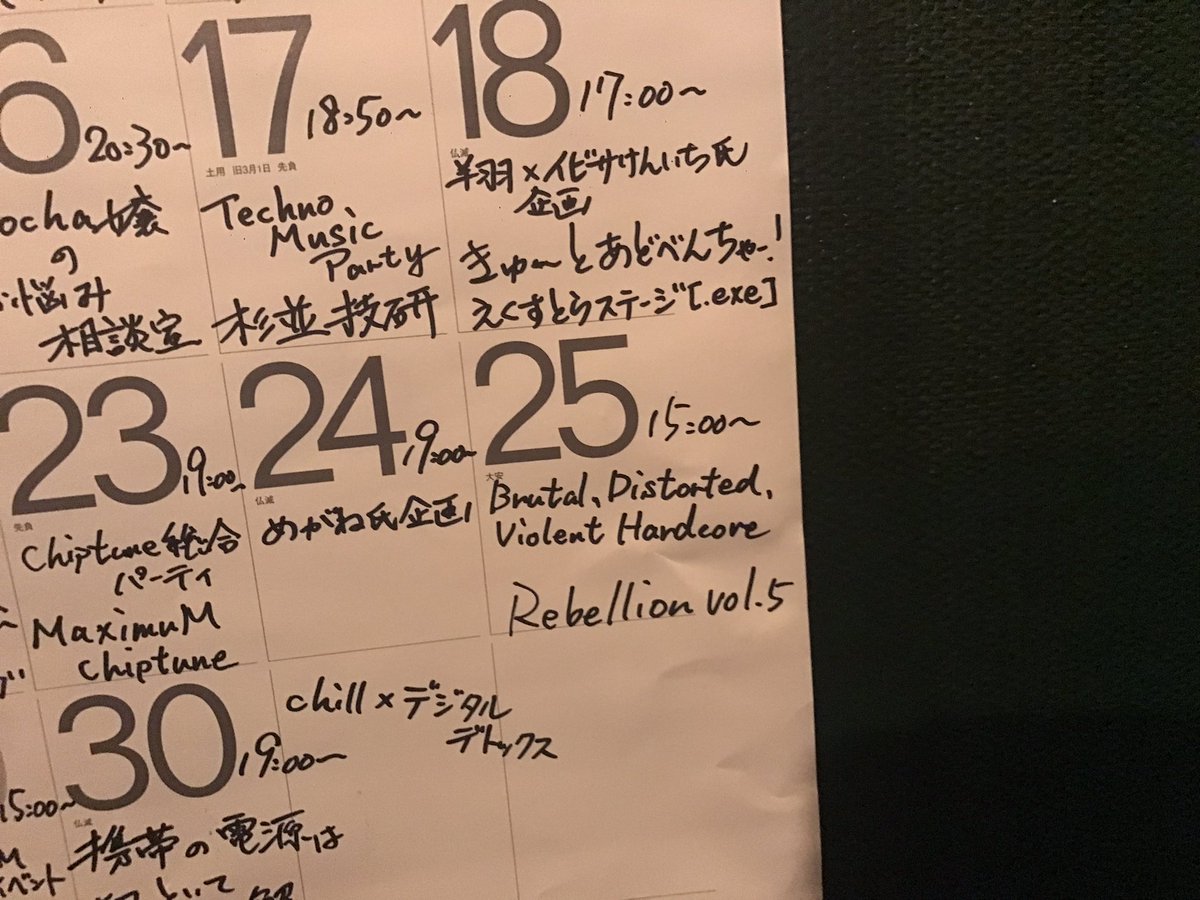 6 20:30〜
ocha嬢
の
悩み
相談室
17 18:50〜
土用 旧3月1日 先負
Techno
Music
Party
杉並技研
18 17:00〜
仏滅
翔羽×イビサけんいち氏
企画
きゅーとあどべんちゃー!
えくすとらステージ[.exe]
23 19:00〜
先負
Chiptune総合
パーティ
MaximuM
chiptune
24 19:00〜
仏滅
めがね氏企画
25 15:00〜
大安
Brutal、Distorted、
Violent Hardcore
Rebellion vol.5
15:00〜
M
イベント
30 19:00〜
仏滅
chill×デジタル
デトックス
携帯の電源は